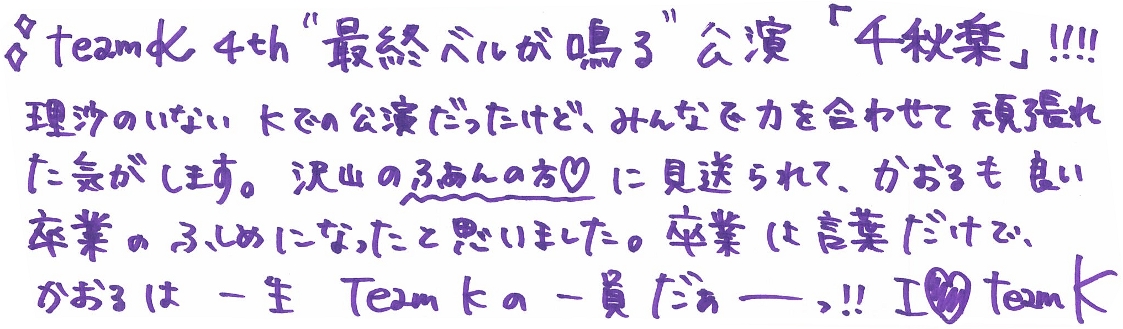 teamK 4th "最終ベルが鳴る" 公演 「千秋楽」!!!!
理沙のいない Kでの公演だったけど、みんなで力を合わせて 頑張れ
た気がします。 沢山のふあんの方♡に見送られて、かおるも良い
卒業のふしめになったと思いました。卒業は言葉だけで、
かおるは 一生 Team Kの一員だぁーーっ!! I♥teamK